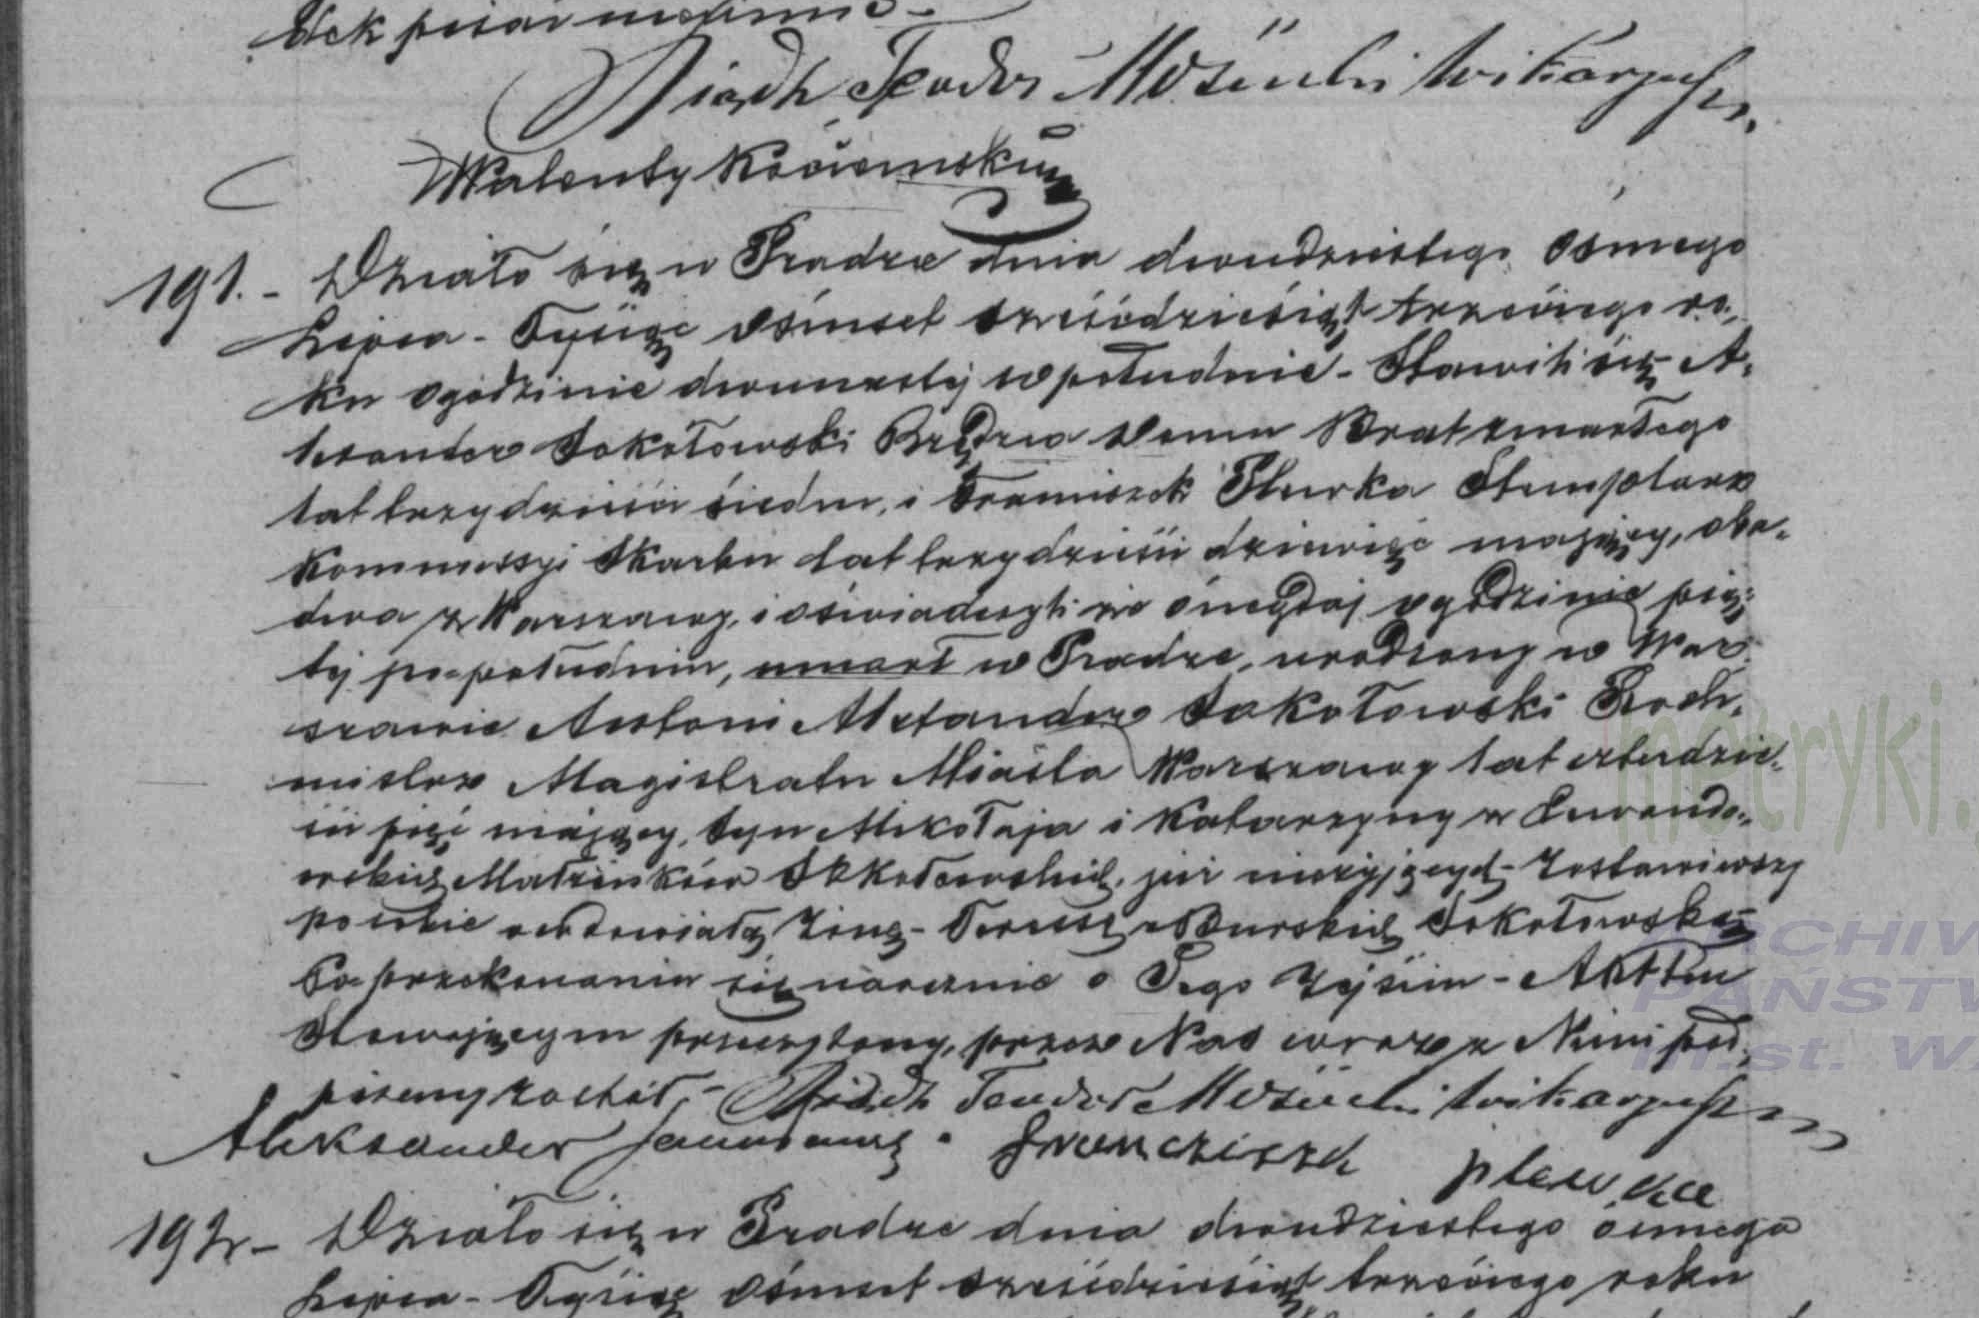 Xiądz Teodor Mosiński Wikaryusz
Walenty
191. - Działo się w Pradze dnia dwudziestego ósmego
Lipca - Tysiąc ośmset sześćdziesiąt trzeciego ro-
ku o godzinie dwunastej w południe - Stawili się A-
lexander Sokołowski Rządzca Domu Brat zmarłego
lat trzydzieści siedm, i Franciszek Stemplarz
Kommissyi Skarbu lat trzydzieści dziewięć mający, oba-
dwa z Warszawy, i oświadczyli że onegdaj o godzinie pią-
tej po południu, umarł w Pradze, urodzony w War-
szawie Antoni Alexander Sokołowski Roch-
mistrz Magistratu Miasta Warszawy lat czterdzie-
ści pięć mający, Syn Mikołaja i Katarzyny z Lewando-
wskich Małżonków Sokołowskich, już nieżyjących - Zostawiwszy
po sobie owdowiałą Żonę - Teressę z Burskich Sokołowską
Po przekonaniu się naocznie o Jego Zejściu - Akt ten
Stawającym przeczytany, przez Nas wraz z Nimi pod-
pisany został, - Xiądz Teodor Mosiński Wikaryusz
Aleksander Franciszek
192 - Działo się w Pradze dnia dwudziestego ósmego
Lipca - Tysiąc ośmset sześćdziesiąt trzeciego roku
metryki.
ARCHIW
PAŃSTW
m.st. W